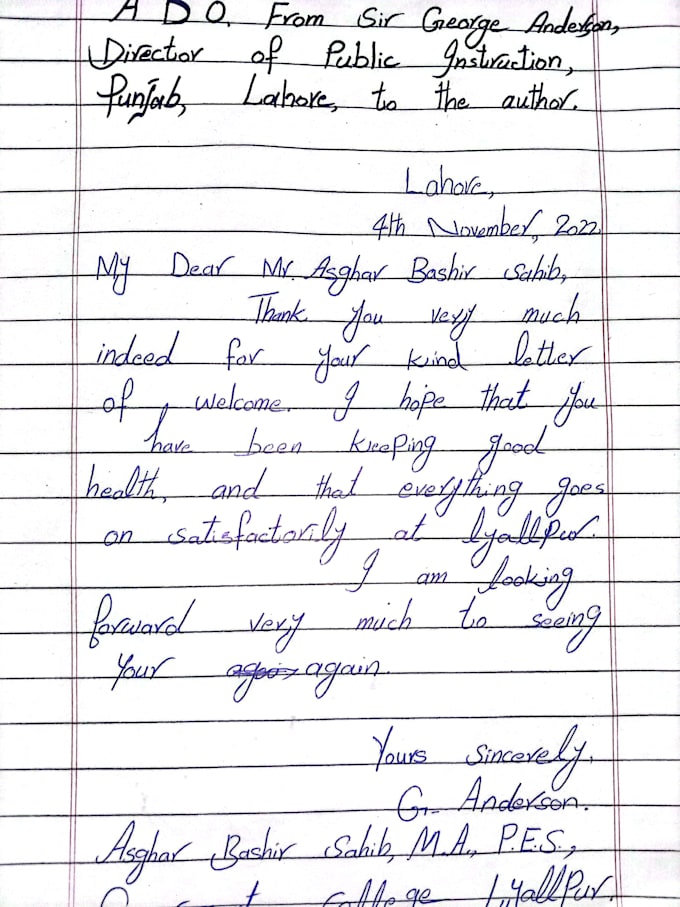 A D O. From Sir George Anderson,
Director of Public Instruction,
Punjab, Lahore, to the author.
Lahore,
4th November, 2022.
My Dear Mr. Asghar Bashir Sahib,
Thank you very much
indeed for your kind letter
of welcome. I hope that you
have been keeping good
health, and that everything goes
on satisfactorily at lyallpur.
I am looking
forward very much to seeing
your again.
Yours sincerely,
G. Anderson.
Asghar Bashir Sahib, M.A., P.E.S.,
College Lyallpur.